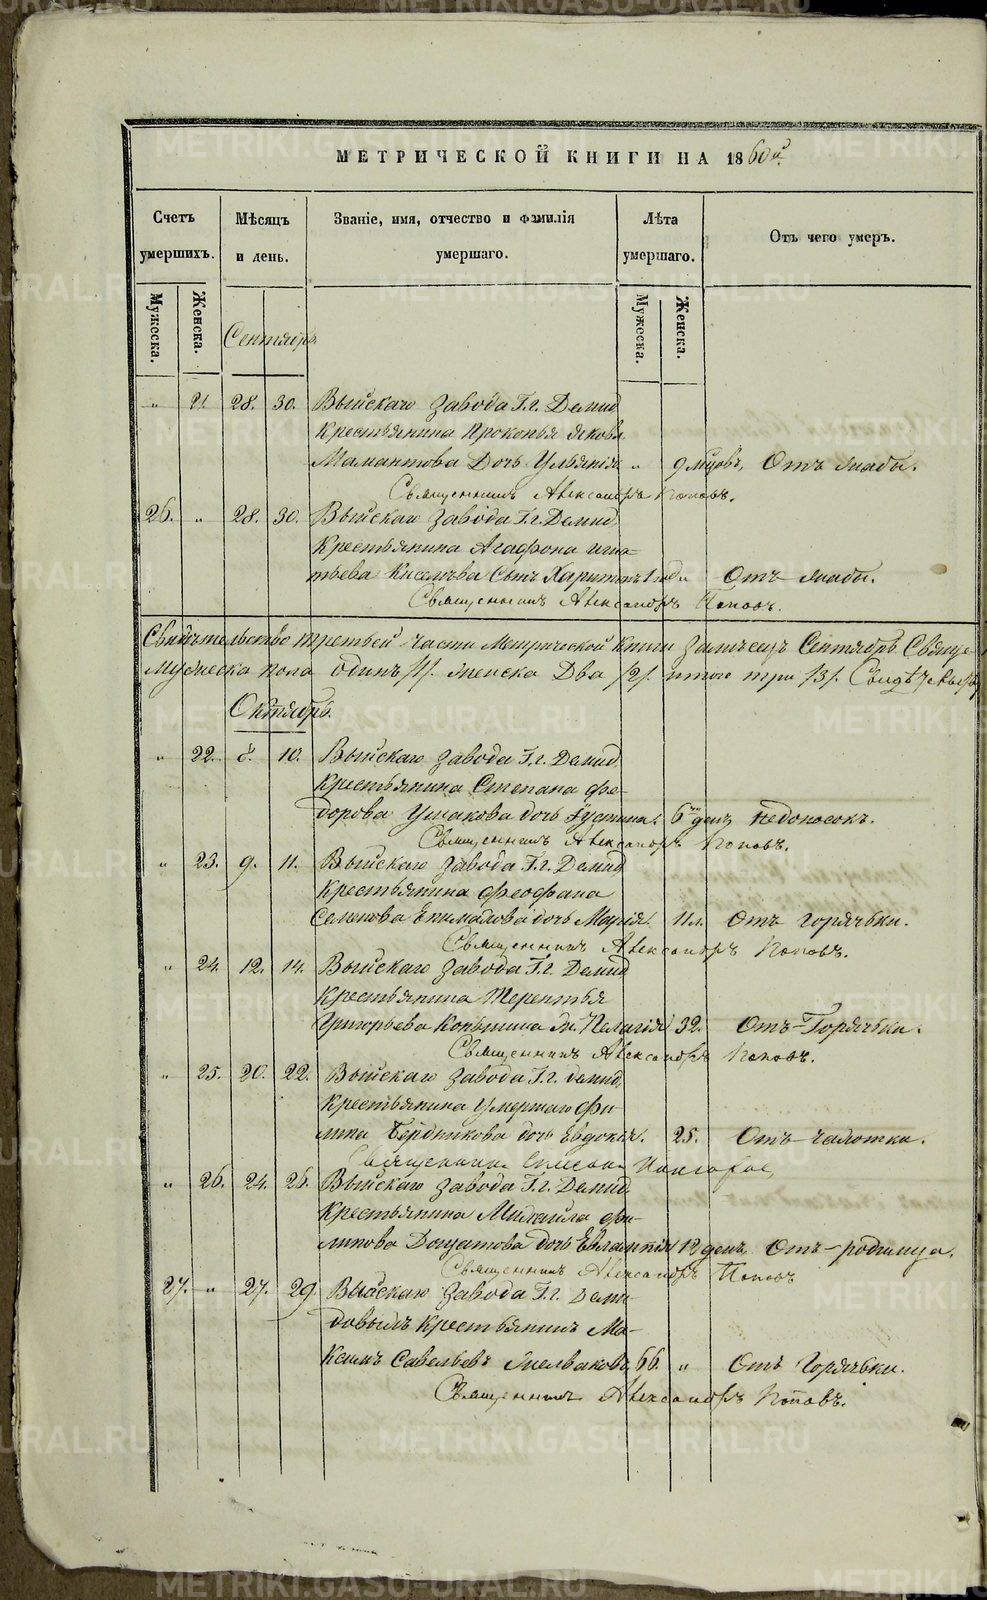 МЕТРИЧЕСКОЙ КНИГИ НА 1860й.
Счетъ умершихъ.
Мужеска.
Женска.
Мѣсяцъ и день.
Званіе, имя, отчество и фамилія умершаго.
Лѣта умершаго.
Мужеска.
Женска.
Отъ чего умеръ.
Сентябрь
" 21. 28. 30. Выйскаго завода Г.г. Демид.
Крестьянина Прокопья Яковл.
Мамантова Дочь Ульянія " 9 мцовъ, Отъ жабы.
Священникъ Александръ Поповъ.
26. " 28. 30. Выйскаго завода Г.г. Демид.
Крестьянина Агафона Игна-
тьева Киселева Сынъ Харитонъ 1 года Отъ жабы.
Священникъ Александръ Поповъ.
Свидѣтельство третьей части Метрической книги за мѣсяцъ Сентябрь Свяще
Мужеска пола одинъ /1/. женска Два /2/. итого три /3/.
Октябрь.
" 22. 8. 10. Выйскаго завода Г.г. Демид.
Крестьянина Степана Фе-
дорова Ушакова дочь Іустина. 6 ден. недоносокъ.
Священникъ Александръ Поповъ.
" 23. 9. 11. Выйскаго завода Г.г. Демид.
Крестьянина Феофана
Семенова дочь Марія. 11 л. Отъ горячьки.
Священникъ Александръ Поповъ.
" 24. 12. 14. Выйскаго завода Г.г. Демид
Крестьянина Терентья
Григорьева Копытина ж. Пелагія 32. Отъ Горячьки.
Священникъ Александръ Поповъ.
" 25. 20. 22. Выйскаго завода Г.г. Демид.
Крестьянина умершаго Фи-
липа Бердникова дочь Евдокія. 25. Отъ чахотки.
Священникъ
" 26. 24. 26. Выйскаго завода Г.г. Демид.
Крестьянина Михаила Фи-
липова дочь Евлампія 12 день Отъ родимца.
Священникъ Александръ Поповъ
27. " 27. 29. Выйскаго завода Г.г. Деми-
довыхъ Крестьянинъ Ма-
ксимъ Савельевъ 66. " Отъ Горячьки.
Священникъ Александръ Поповъ.
METRIKI.GASO-URAL.RU